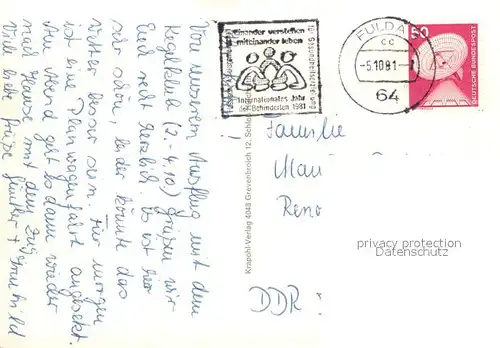 Von unserem Ausflug mit dem
Kegelklub (2.-4.10) grüßen wir
Euch recht herzlich. Es ist hier
sehr schön, leider könnte das
Wetter besser sein. Für morgen
ist eine Planwagenfahrt angesetzt.
Am Abend geht es dann wieder
nach Hause mit dem Zug.
Viele liebe Grüße Günter +
Krapohl-Verlag 4048 Grevenbroich 12, Schloß
Einander verstehen
miteinander leben
Internationales Jahr
der Behinderten 1981
FULDA
cc
-5.10.81
64
50
DEUTSCHE BUNDESPOST
Familie
Reno
DDR
privacy protection
Datenschutz